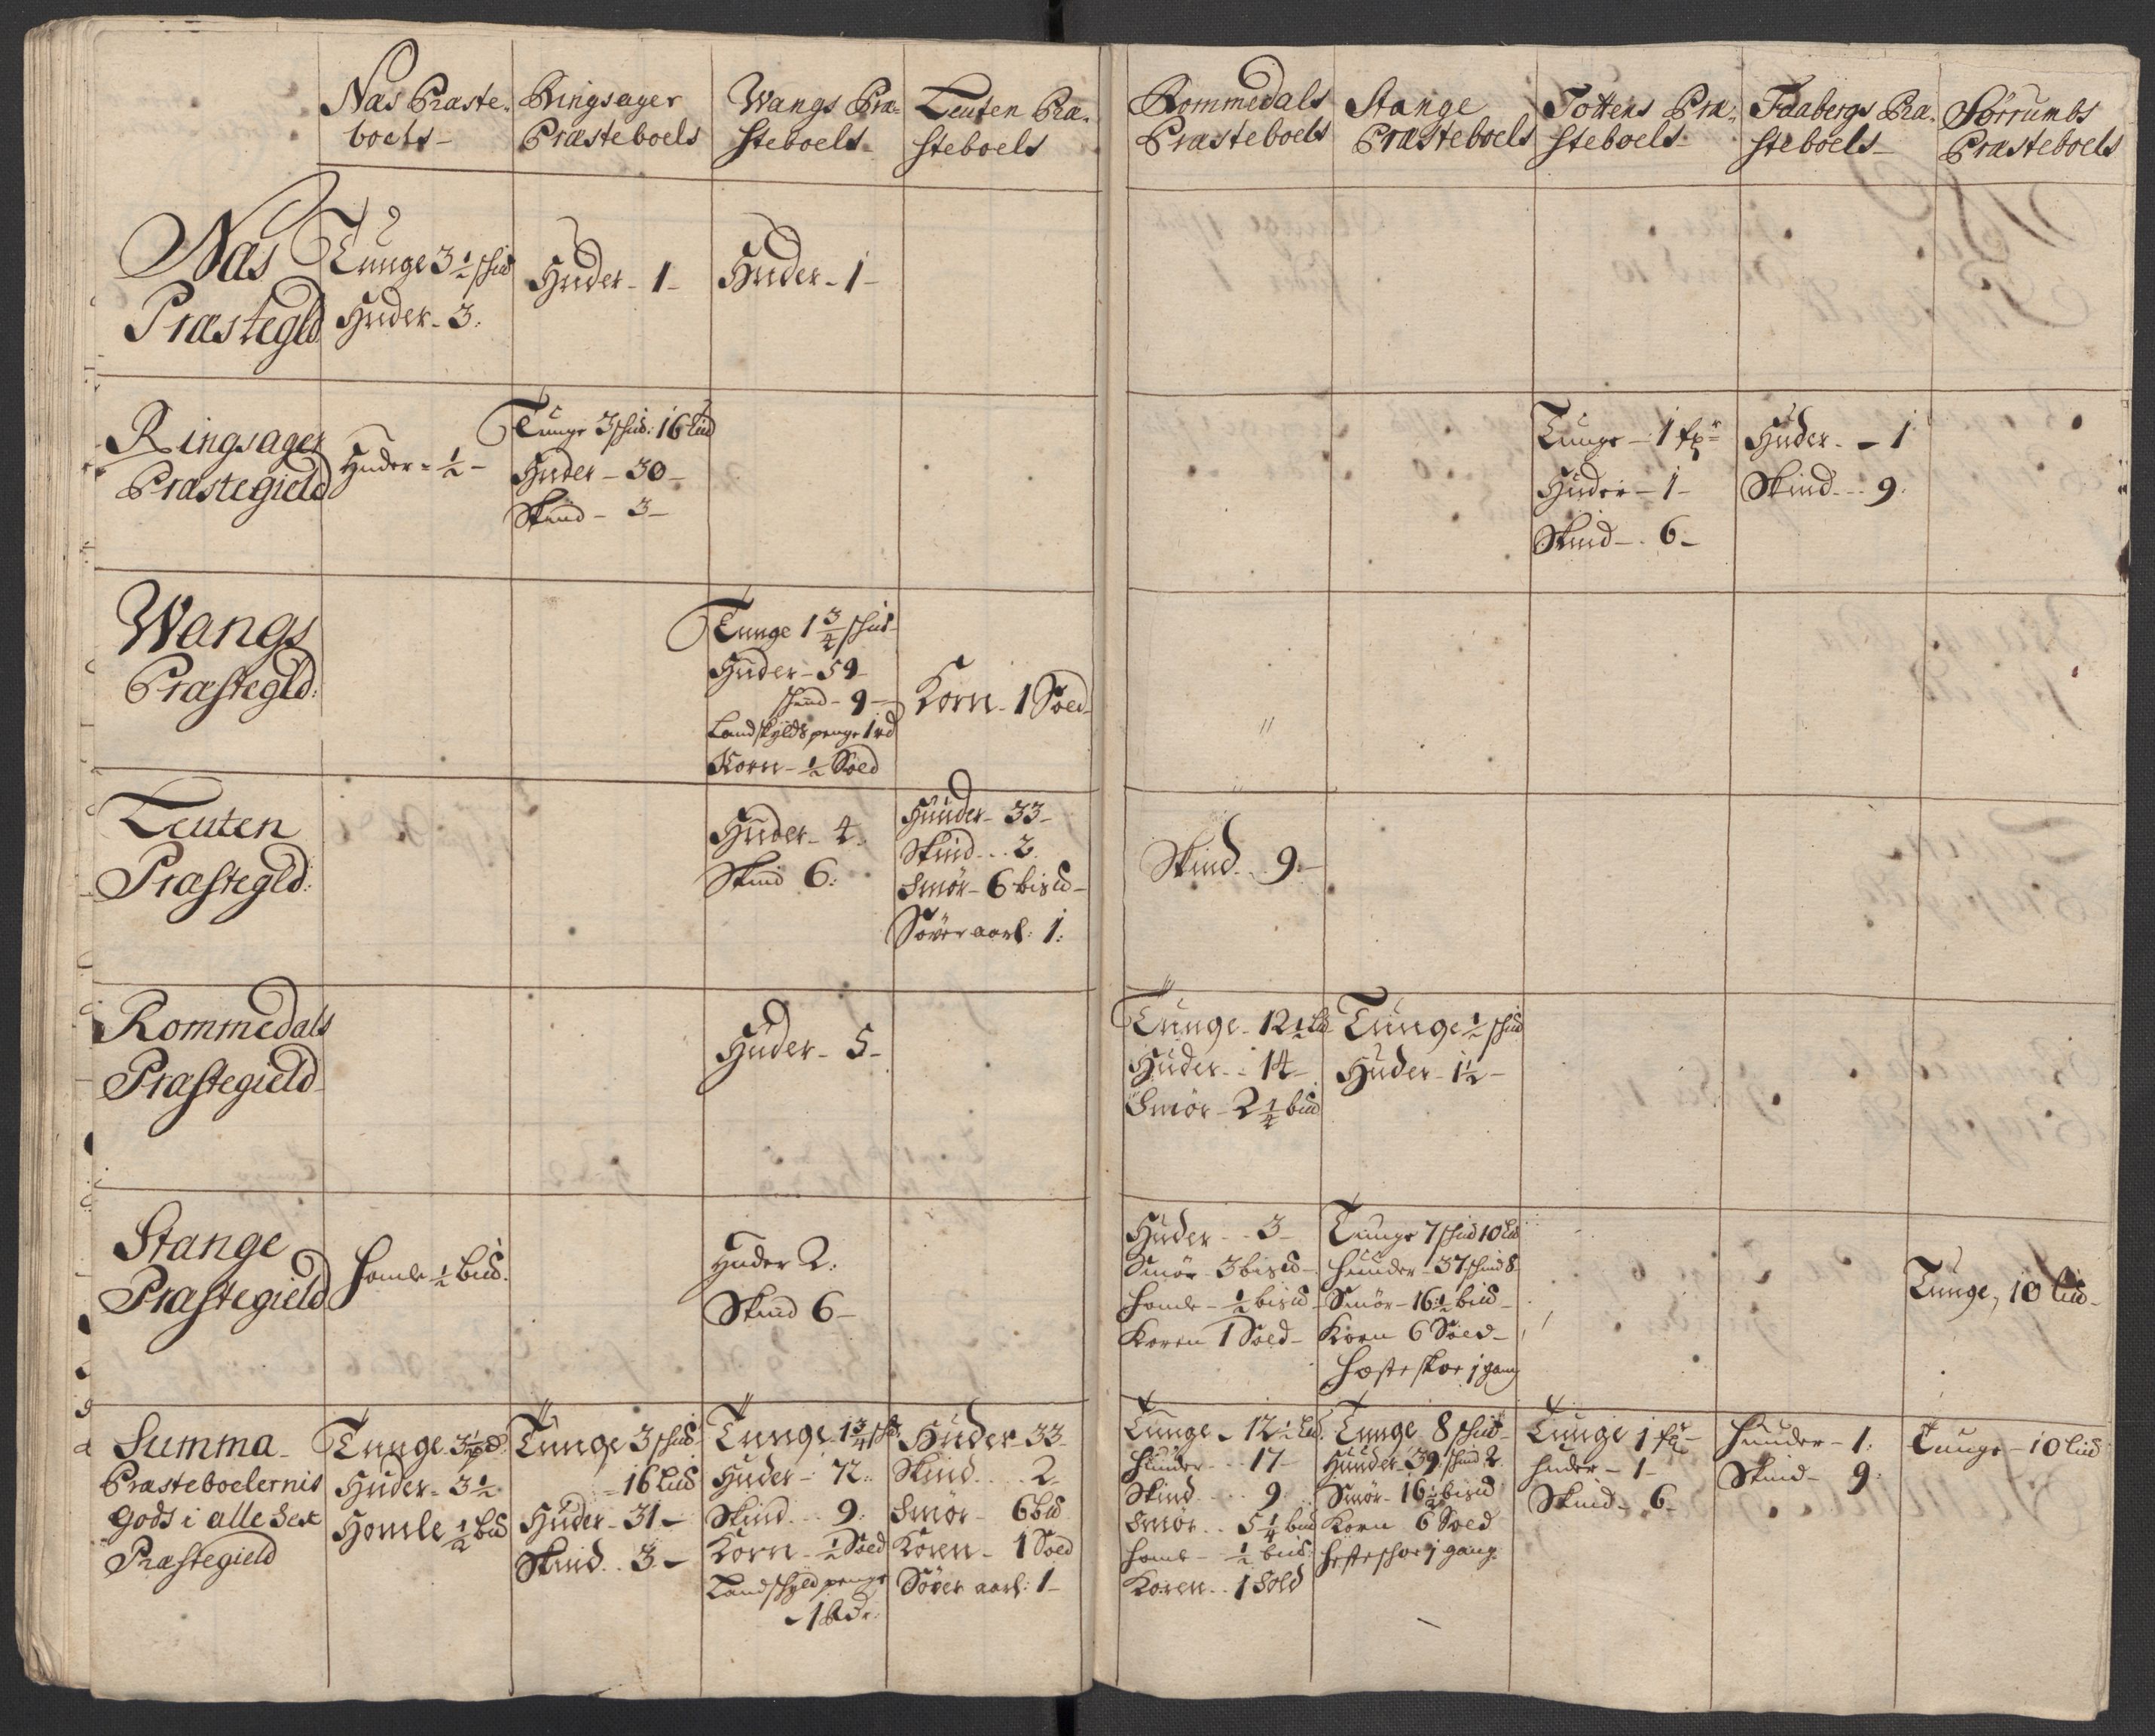 Næs Præste-
boels-
Ringsager
Præsteboels
Wangs Præ-
steboels-
Leuten Præ-
steboels
Rommedals
Præsteboels
Stange
Præsteboels
Tottens Præ-
steboels-
Faabergs Præ-
steboels-
Sørrumbs
Præsteboels
Næs
Præstegld
Tunge 3 1/2 schud
Huder - 3.
Huder - 1 -
Huder - 1 -
Ringsager
Præstegield
Huder - 1/2 -
Tunge 3 schud: 16 lud
Huder - 30 -
Skind - 3 -
Tunge - 1 fr
Huder - 1 -
Skind - 6 -
Huder - 1
Skind - 9.
Wangs
Præstegld:
Tunge 1 3/4 schud
Huder - 59
schind - 9 -
Landskylds penge 1 rd
Korn - 1/2 Sæed
Korn - 1 Soed
Leuten
Præstegld:
Huder - 4.
Skind 6:
Huuder - 33 -
Skind - 2.
Smør - 6 bisd -
Søver aarl: 1:
Skind - 9. -
Rommedals
Præstegield
Huder - 5 -
Tunge - 12 1/2 ld
Huder - 14 -
Smør - 2 1/4 bud
Tunge 1/2 schud
Huder - 1 1/2 -
Stange
Præstegield
Homle 1/2 bud.
Huder 2.
Skind 6 -
Huder - 3 -
Smør - 3 bisd -
Homle - 1/2 bisd
Koren 1 Soed -
Tunge 7 schud 10 lud
Huuder - 37 schind 8
Smør - 16 1/2 bud -
Korn 6 Soed -
Hæste skoe j gang
Tunge, 10 lud -
Summa -
Præsteboelernis
Gods i alle Sex
Præstegield
Tunge 3 1/2 schd.
Huder - 3 1/2
Homle 1/2 bud
Tunge 3 schud
- 16 lud
Huder - 31 -
Skind - 3 -
Tunge 1 3/4 schd
Huder - 72:
Skind - 9.
Korn - 1/2 Soed
Landschyld penge
- 1 Rdr:
Huder - 33 -
Skind - 2 -
Smør - 6 bd
Koren - 1 Soed
Søver aarl: 1 -
Tunge - 12 1/2 lud.
Huuder - 17 -
Skind - 9.
Smør - 5 1/4 bud
Homle - 1/2 bud.
Koren - 1 Sold
Tunge 8 schud -
Huuder 39 schind 2
Smør - 16 1/2 bisd
Korn 6 Soed
Hesteschoe j gang
Tunge 1 fr
Huder - 1 -
Skind - 6 -
Huuder - 1.
Skind - 9.
Tunge - 10 lud